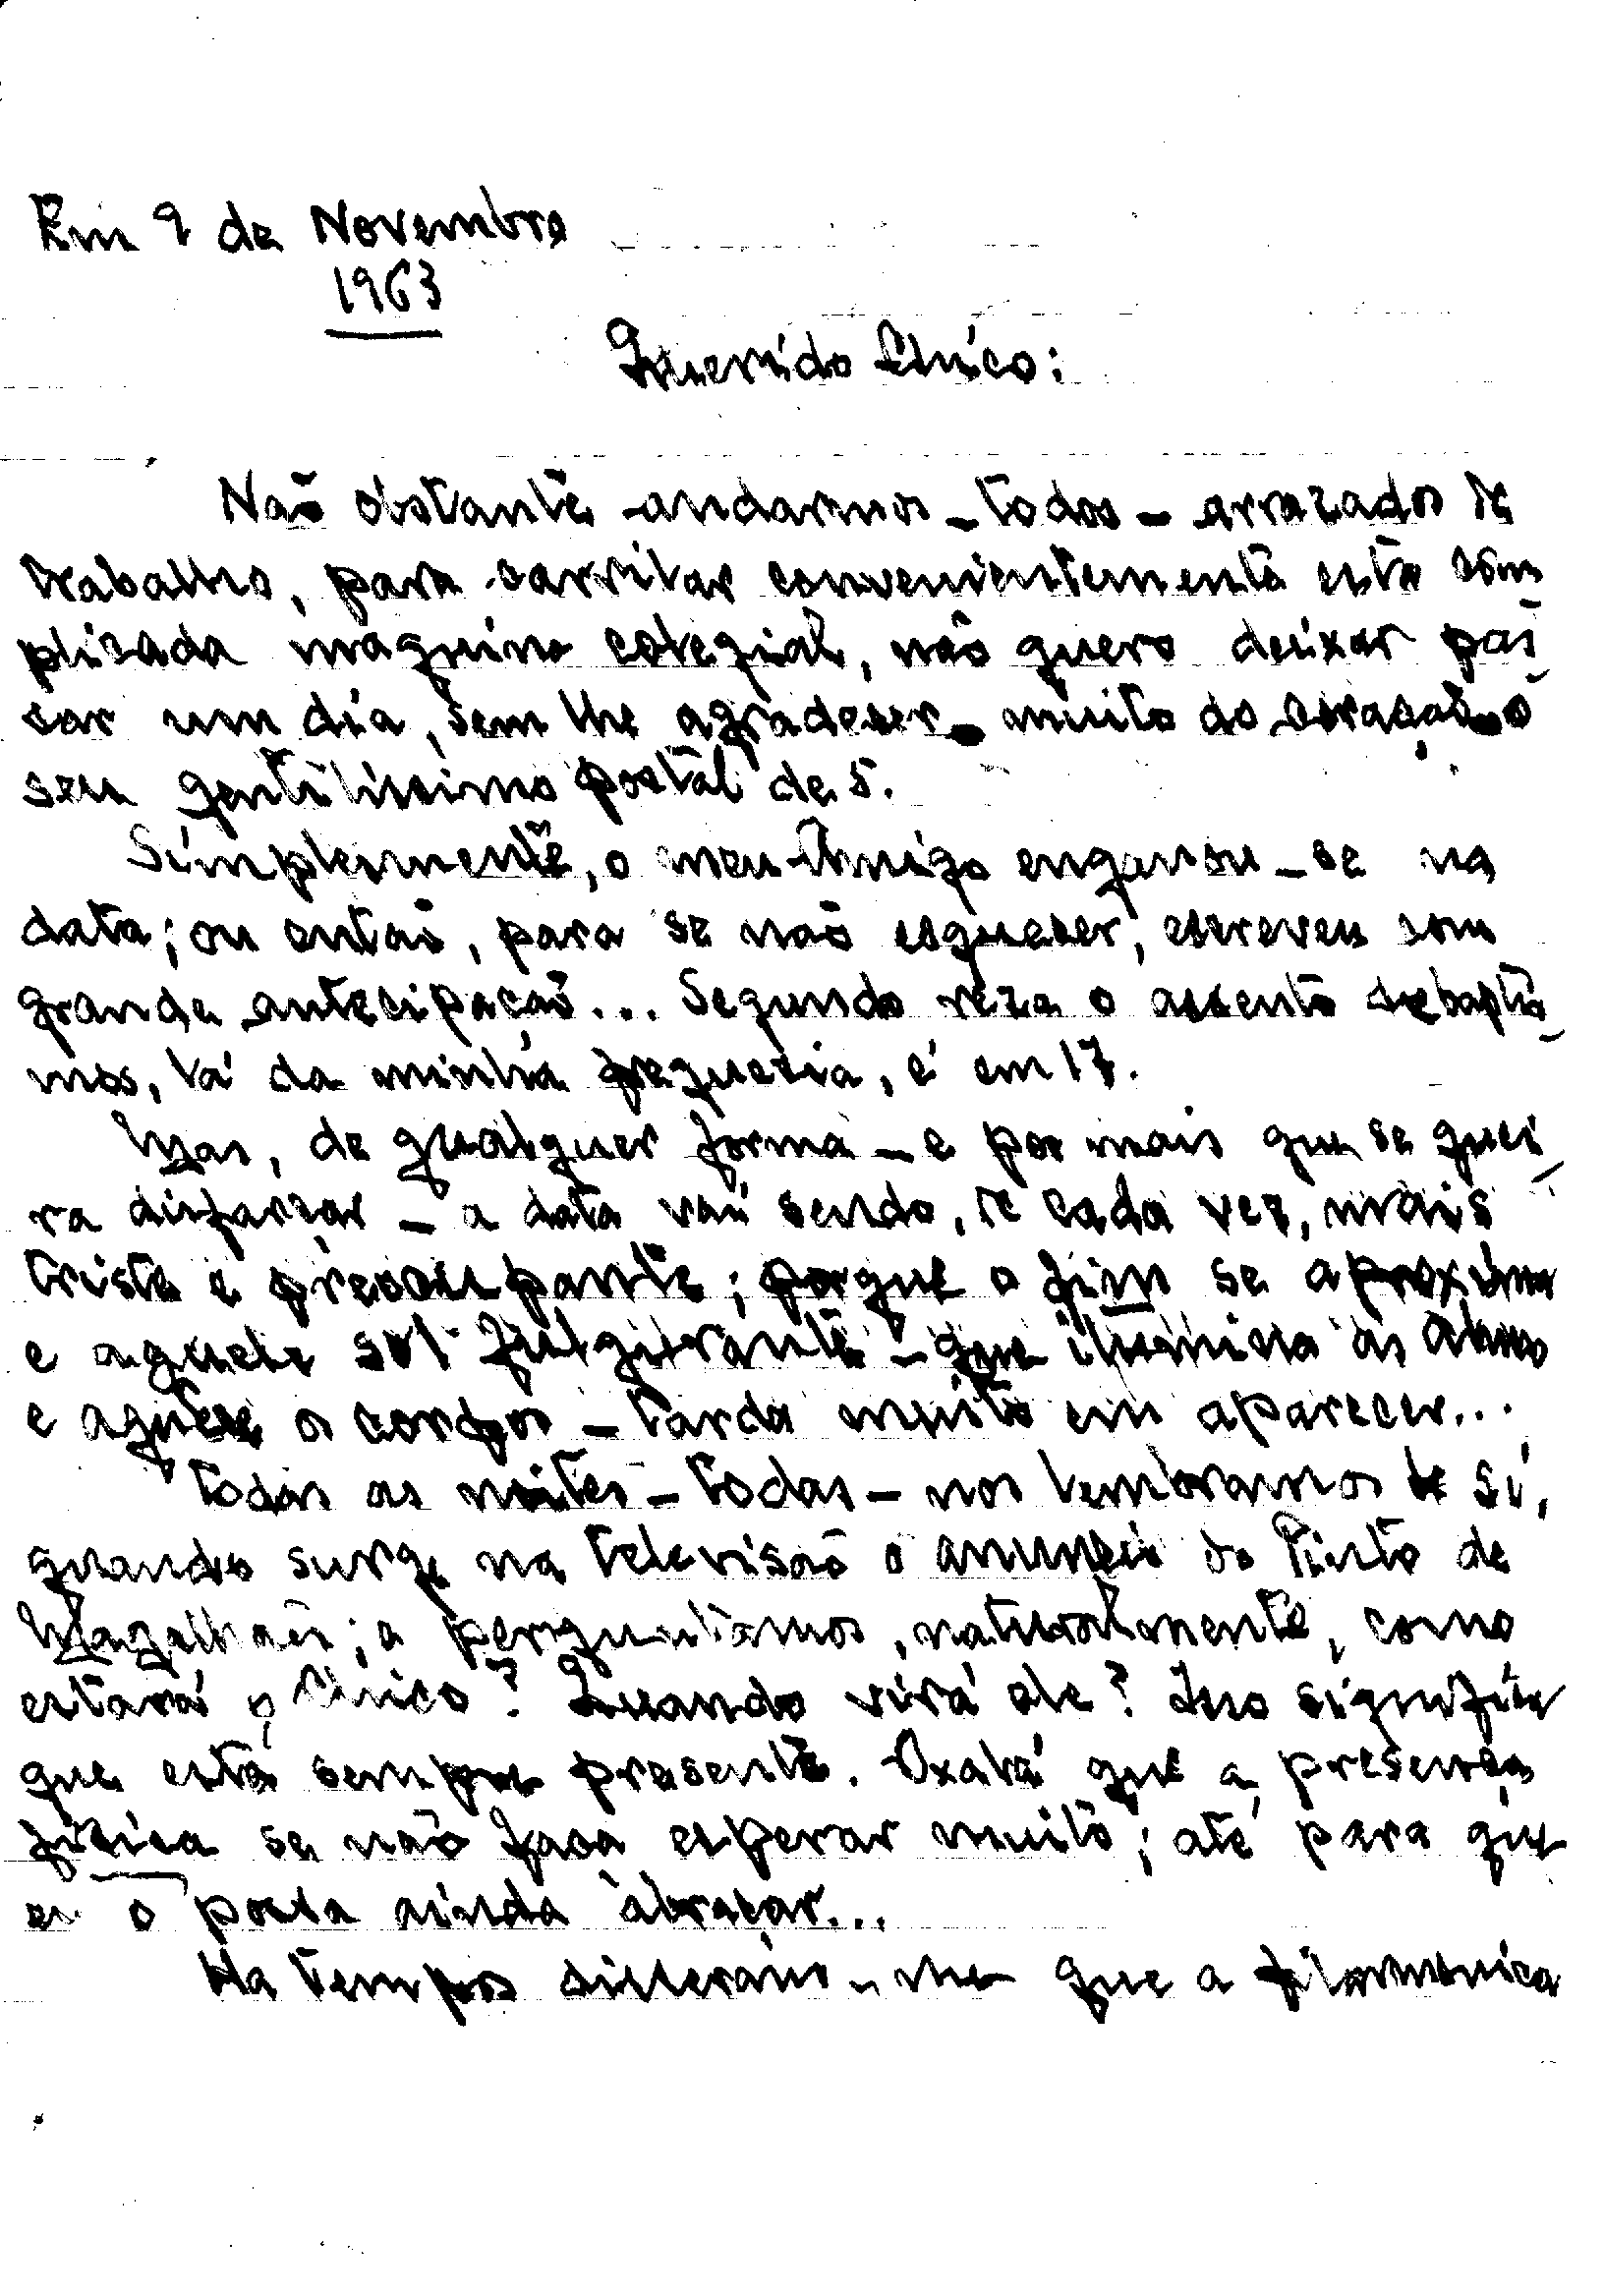 Em 9 de Novembro
1963
Querido Chico:
Não obstante andarmos - todos - arrazados de
trabalho, para carrilar convenientemente esta com
plicada maquina colegial, não quero deixar pas-
sar um dia, sem lhe agradecer - muito do coração - o
seu gentilissimo postal de 5.
Simplesmente, o meu Amigo enganou-se na
data; ou então, para se não esquecer, escreveu com
grande antecipação... Segundo reza o assento de baptis-
mos, lá da minha freguezia, é em 17.
Mas, de qualquer forma - e por mais que se quei-
ra disfarçar - a data vai sendo, de cada vez, mais
triste e preocupante; porque o fim se aproxima
e aquele sol fulgurante - que ilumina as almas
e aquece os corpos - tarda muito em aparecer...
Todas as noites - todas - nos lembramos de si,
quando surge na televisão o anuncio do Pinto de
Magalhães; a perguntamos, naturalmente, como
estará o Chico? Quando virá ele? Isso significa
que está sempre presente. Oxalá que a presença
fizica se não faça esperar muito; até para que
eu o possa ainda abraçar...
Ha tempos disseram-me que a filarmonica